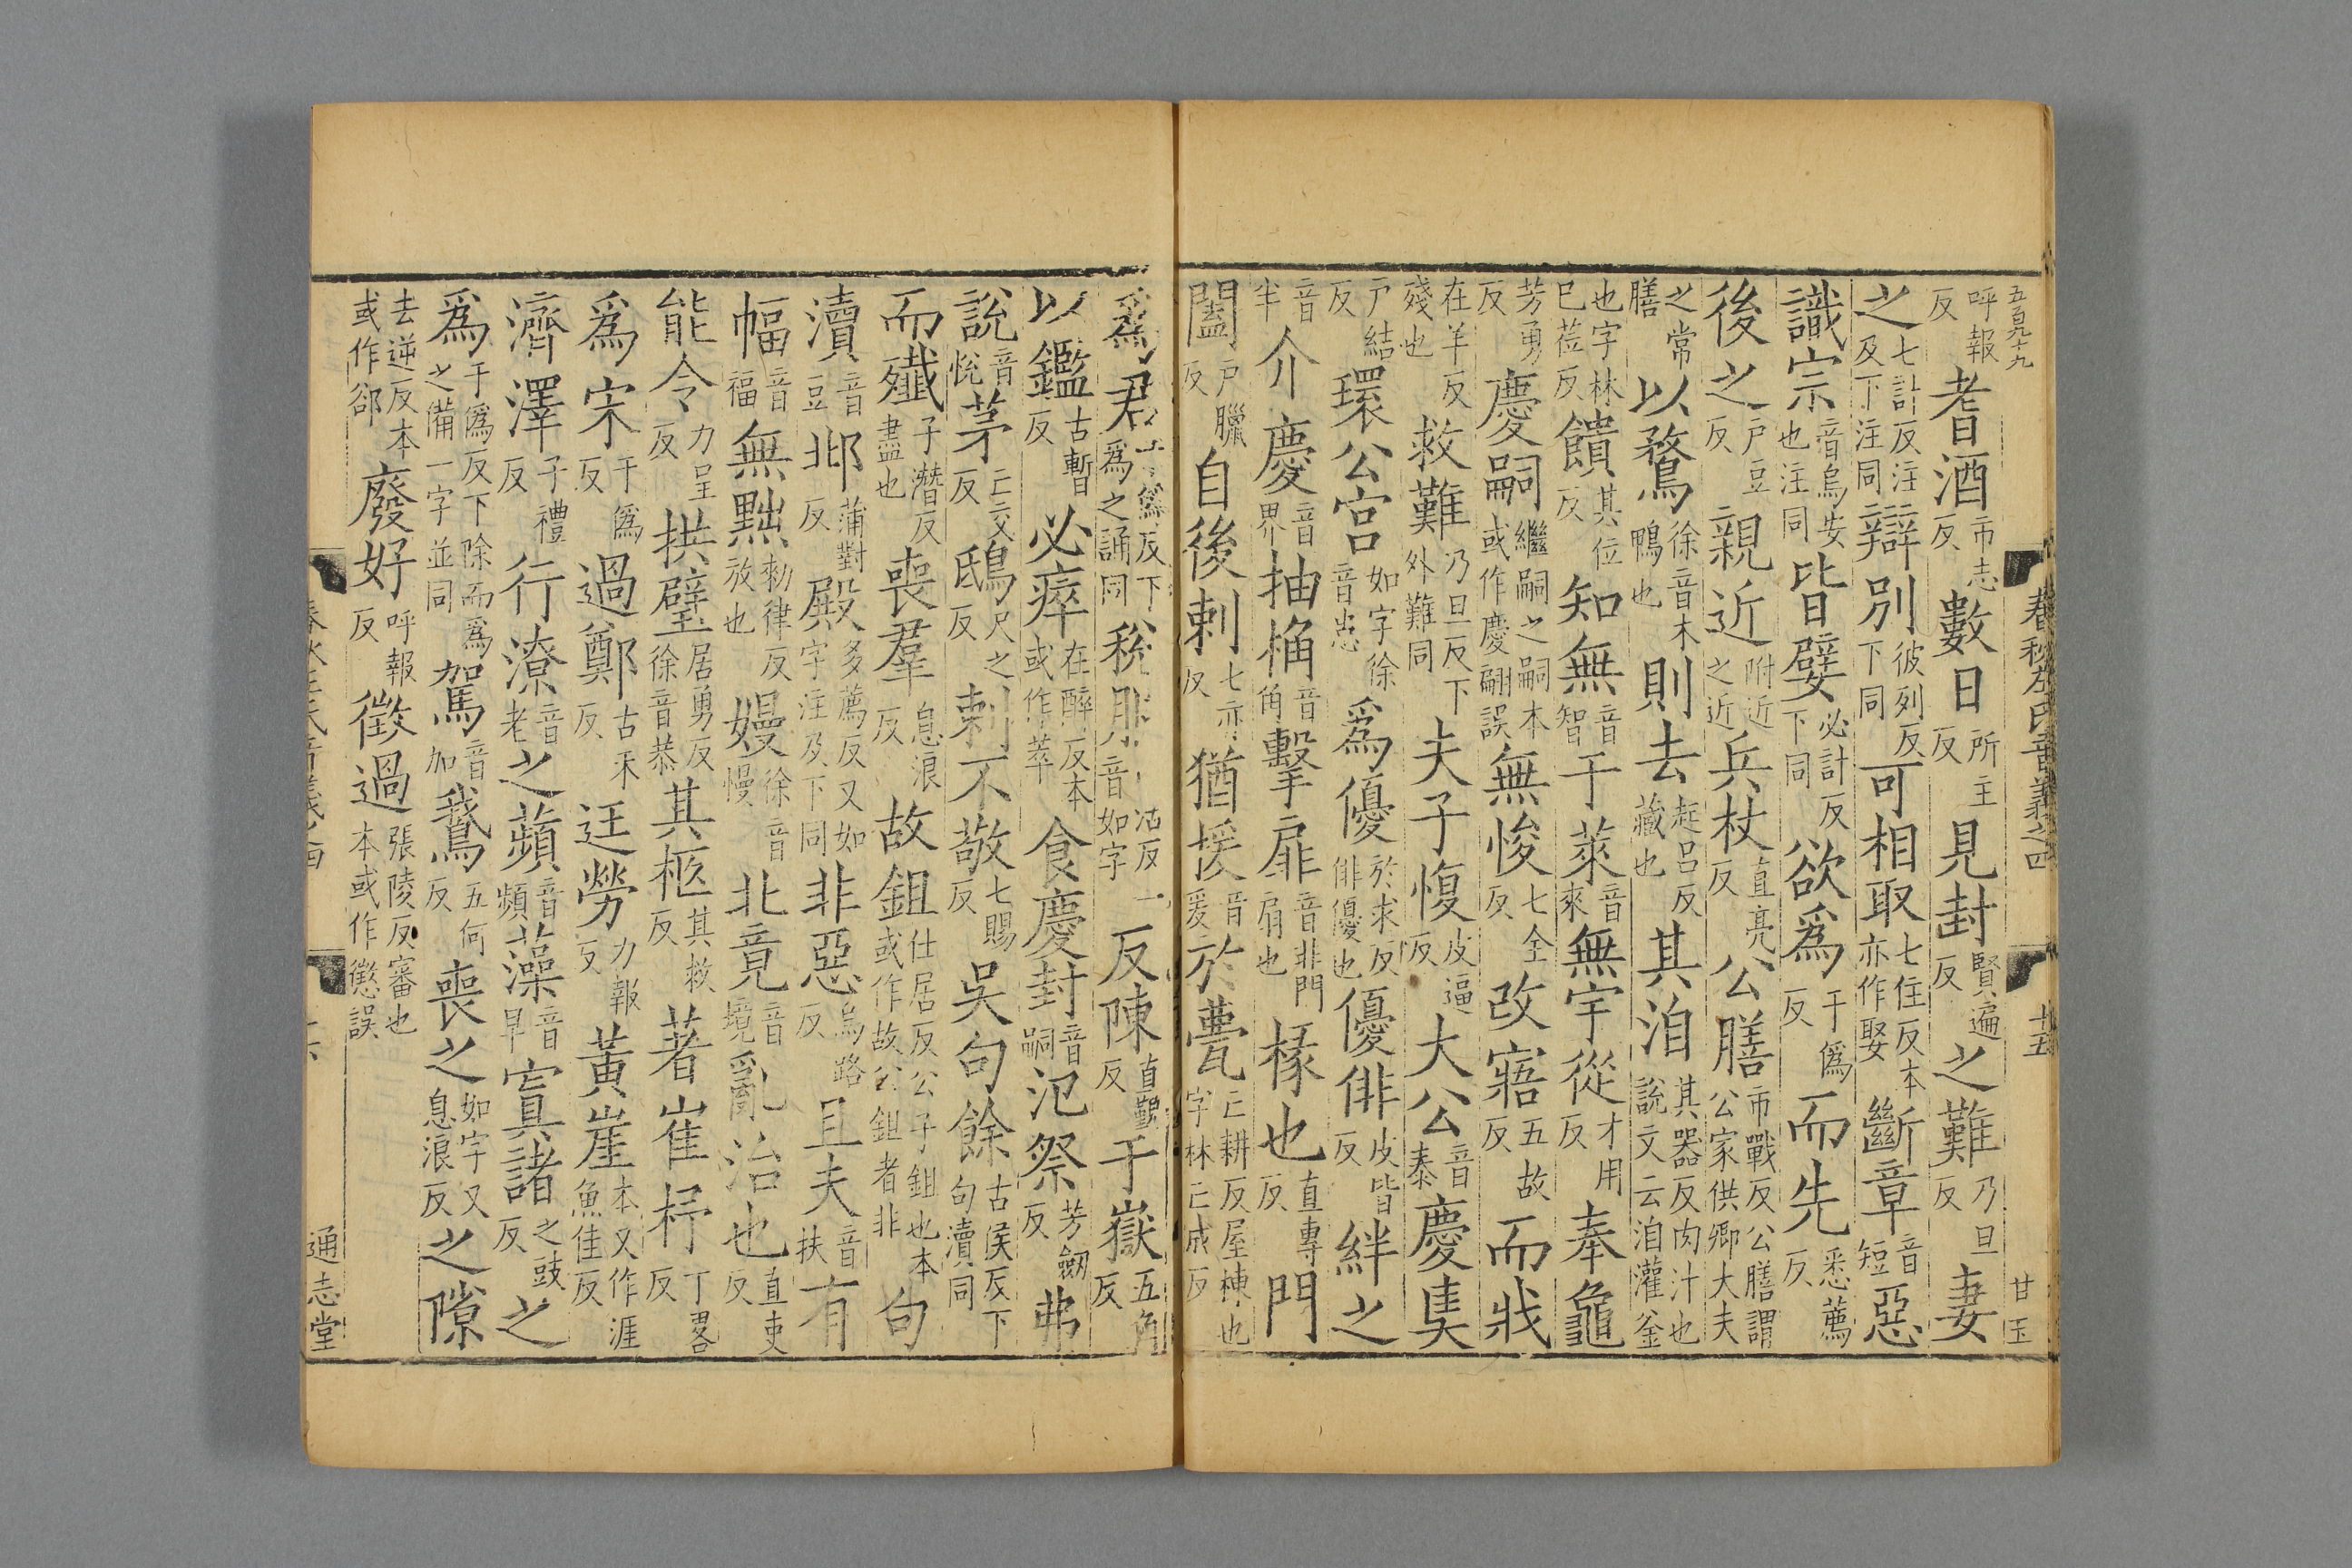 五百九十九
春秋左氏音義之四
十五
甘玉
呼報反耆酒市志反數日所主反見封賢遍反之難乃旦反妻
之七計反注及下注同辯別彼列反下同可相取七住反本亦作娶斷章音短惡
識宗音烏安也注同皆嬖必計反下同欲爲于僞反而先悉薦反
後之戶豆反親近附近之近兵杖直亮反公膳市戰反公膳謂公家供卿大夫
之常膳以鶩徐音木鴨也則去起呂反藏也其洎其器反肉汁也說文云洎灌釜
也字林巳莅反饋其位反知無音智于萊音來無宇從才用反奉龜
芳勇反慶嗣繼嗣之嗣本或作慶翩誤無悛七全反改寤五故反而戕
在羊反殘也救難乃旦反下外難同夫子愎皮逼反大公音泰慶𡙇
戶結反環公宮如字徐音患爲優於求反俳優也優俳皮皆反絆之
音半介慶音界抽桷音角擊扉音非門扇也椽也直專反門
闔戶臘反自後刺七亦反猶援音爰於甍亡耕反屋棟也字林亡成反
爲君于爲反下爲之誦同稅服音如字反陳直覲反于嶽五角反
以鑑古暫反必瘁在醉反本或作萃食慶封音嗣氾祭芳劒反弗
說音悅茅亡交反鴟尺之反刺不敬七賜反吳句餘古侯反下句瀆同
而殲子潛反盡也喪羣息浪反故鉏仕居反公子鉏也本或作故公鉏者非句
瀆音豆邶蒲對反殿多薦反又如字注及下同非惡烏路反且夫音扶有
幅音福無黜勑律反放也嫚徐音慢北竟音境亂治也直吏反
能令力呈反拱璧居勇反徐音恭其柩其救反著崔杼丁畧反
爲宋于僞反過鄭古禾反迋勞力報反黃崖本又作涯魚佳反
濟澤子禮反行潦音老之蘋音頻藻音早寘諸之豉反之
爲于僞反下除而爲之備一字並同駕音加鵝五何反喪之如字又息浪反之隙
去逆反本或作郤廢好呼報反徵過張陵反審也本或作懲誤
通志堂